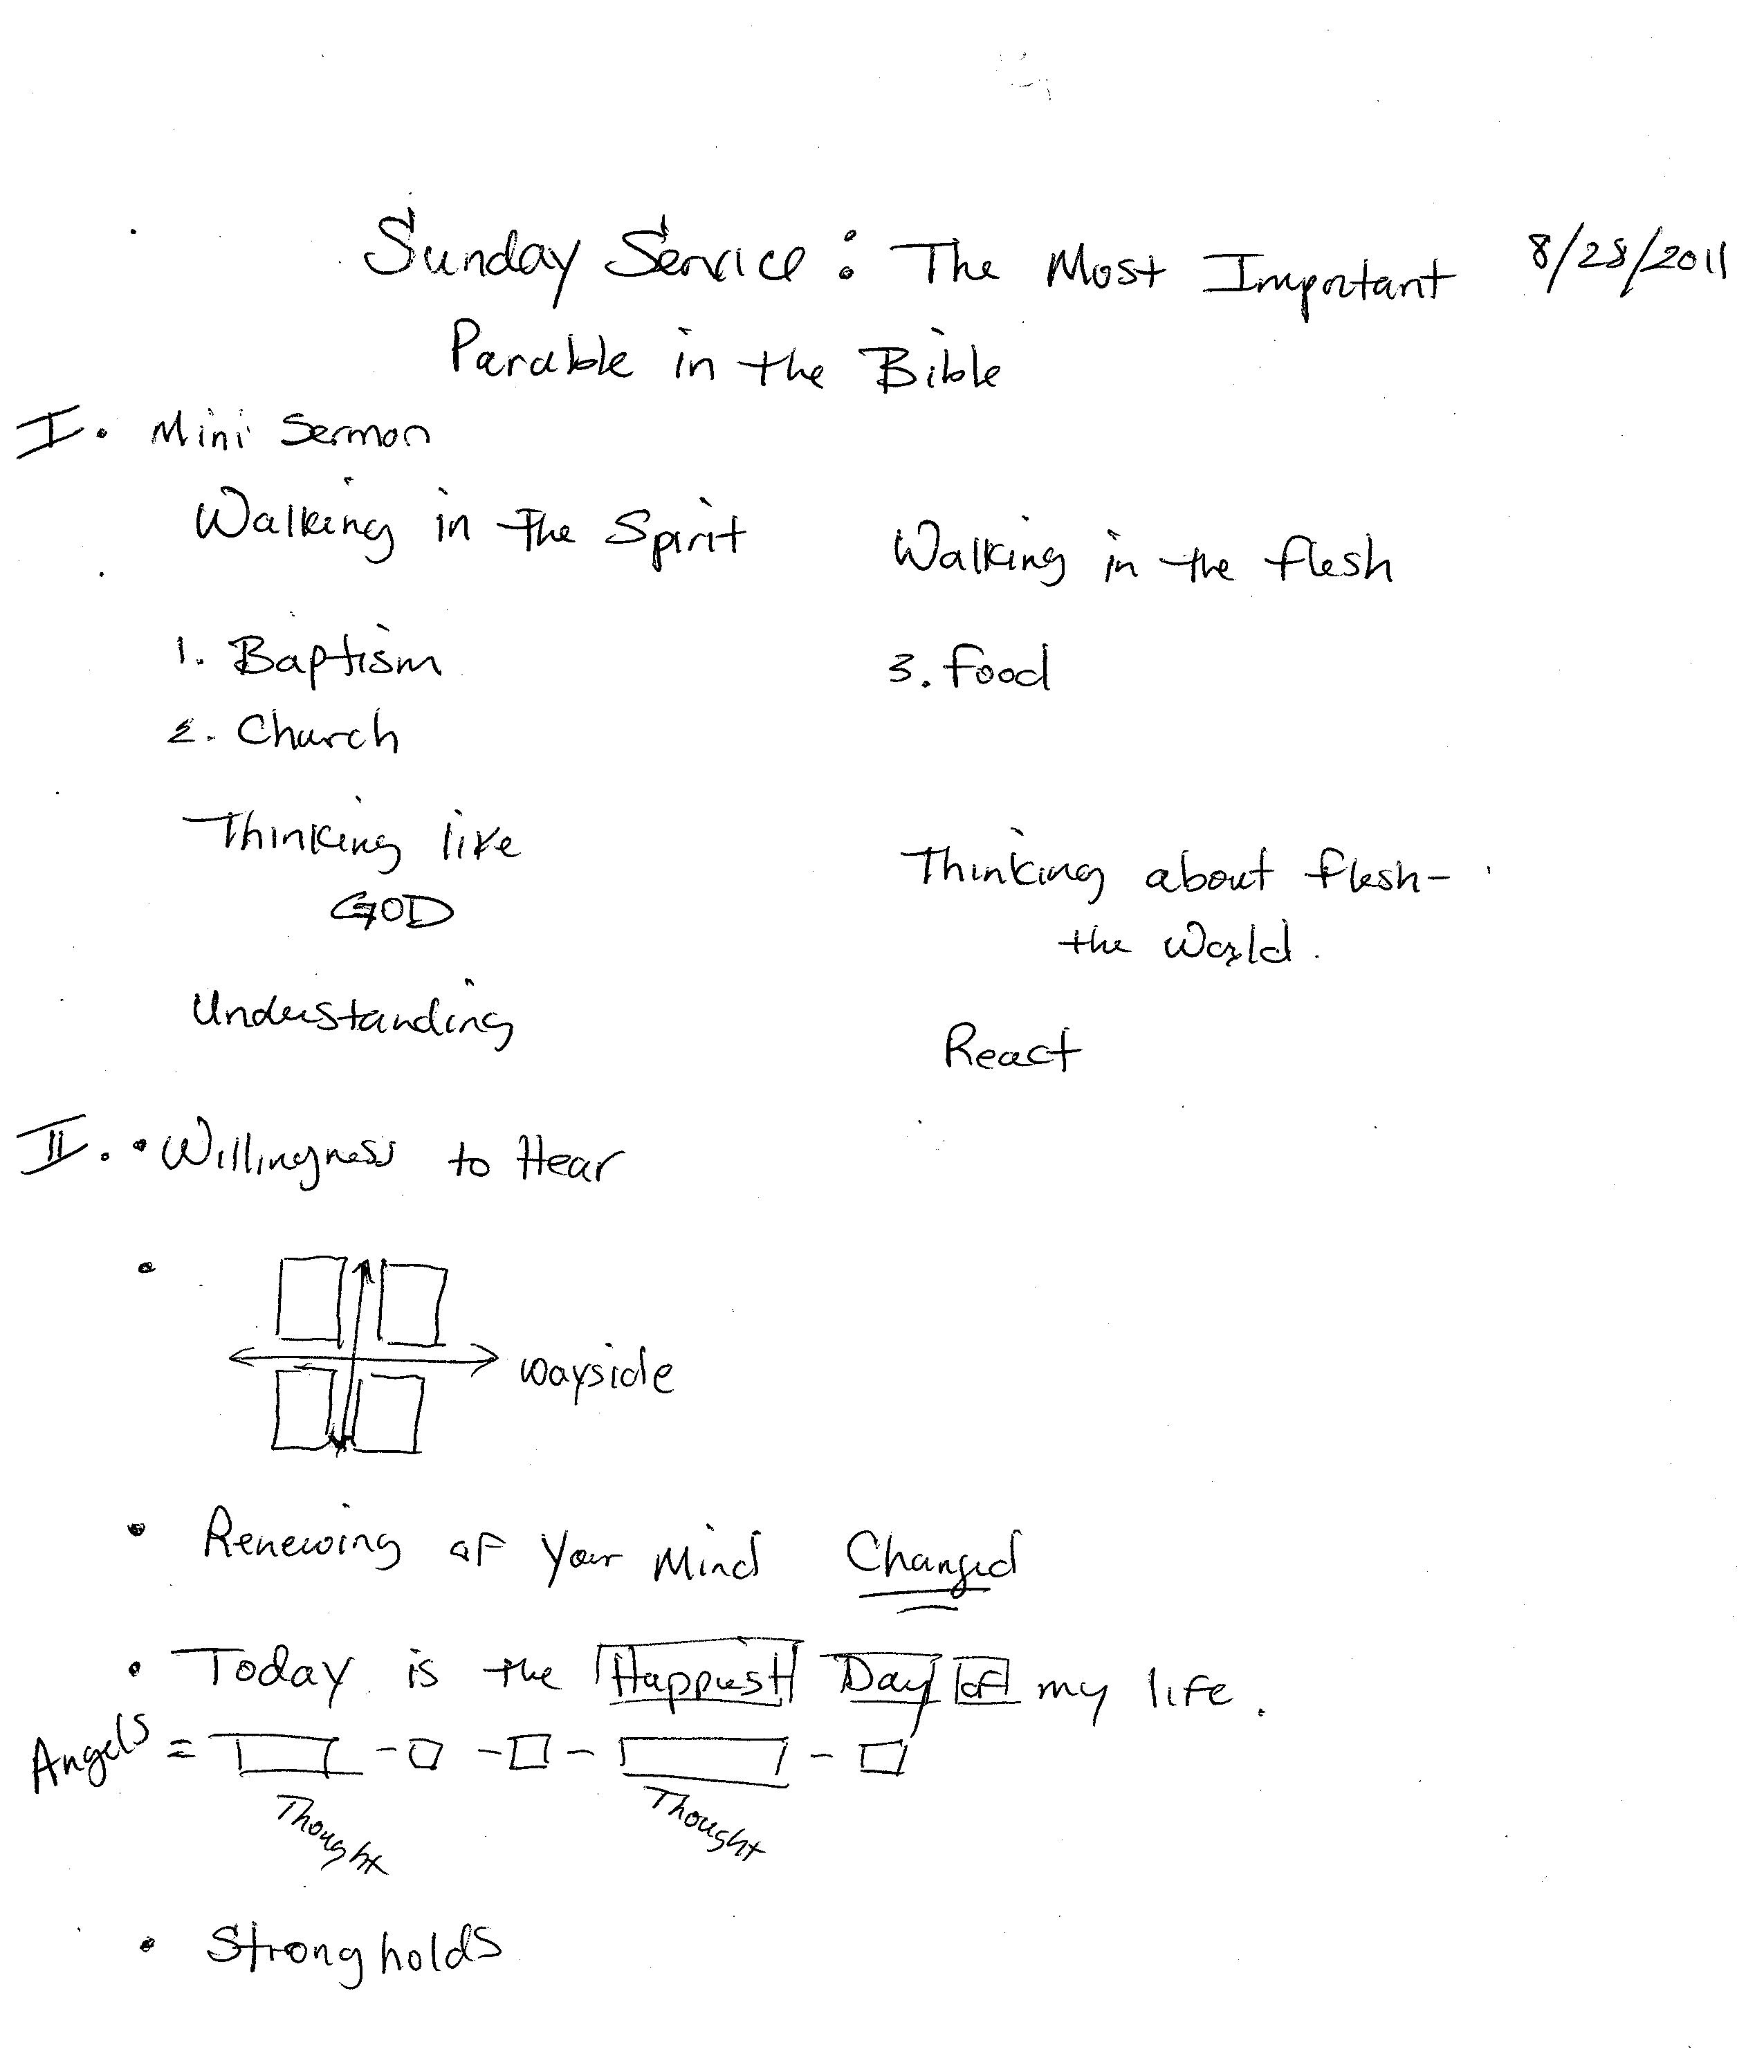 Sunday Service: The Most Important 8/28/2011
Parable in the Bible
I. Mini Sermon
Walking in the Spirit Walking in the flesh
1. Baptism 3. food
2. Church
Thinking like Thinking about flesh-
GOD the World.
Understanding React
II. • Willingness to Hear
• wayside
• Renewing of Your Mind Changed
• Today is the Happiest Day of my life.
Angels =
Thought Thought
• Strongholds